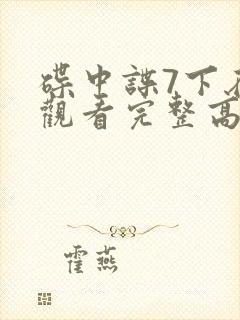 碟中諜7下在
觀看完整高
霍燕